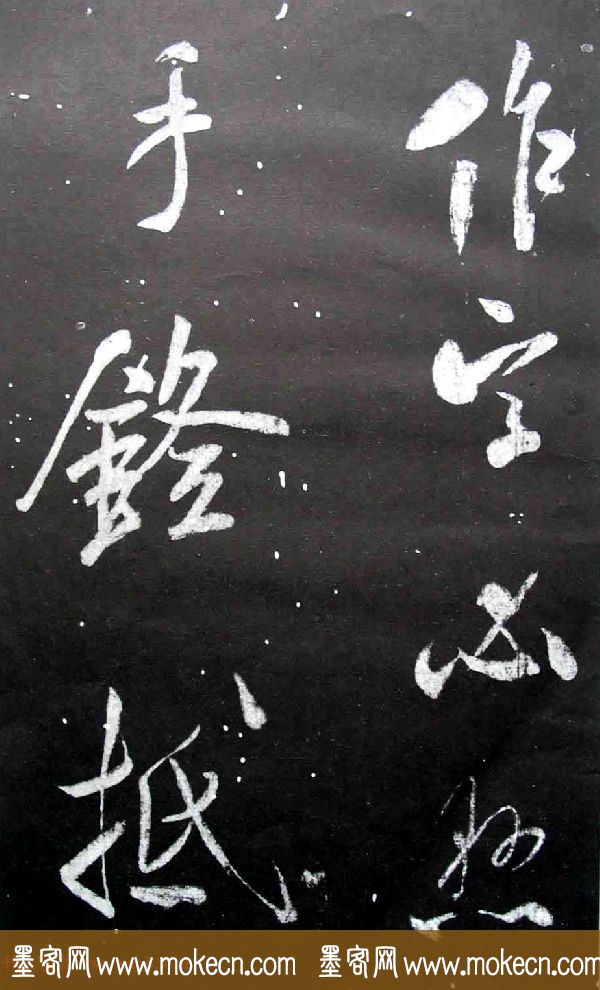 作字必
手鐙抵
墨客网 www.mokecn.com 墨客网 www.mokecn.com